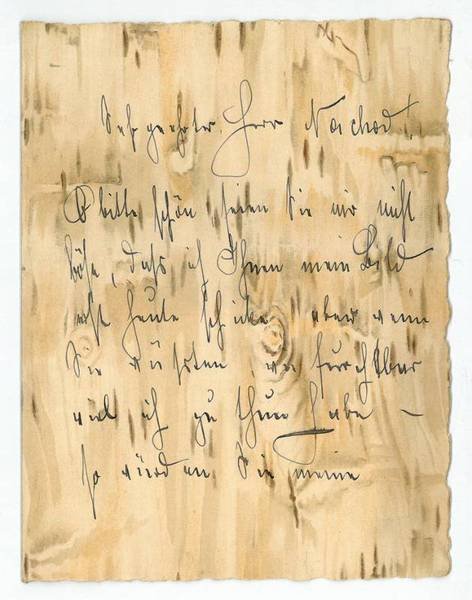 Sehr geehrter Herr Nachod!
O bitte schön seien Sie mir nicht
böse, dass ich Ihnen mein Bild
erst heute schicke aber wenn
Sie wüssten wie furchtbar
viel ich zu thun habe —
so würden Sie meine